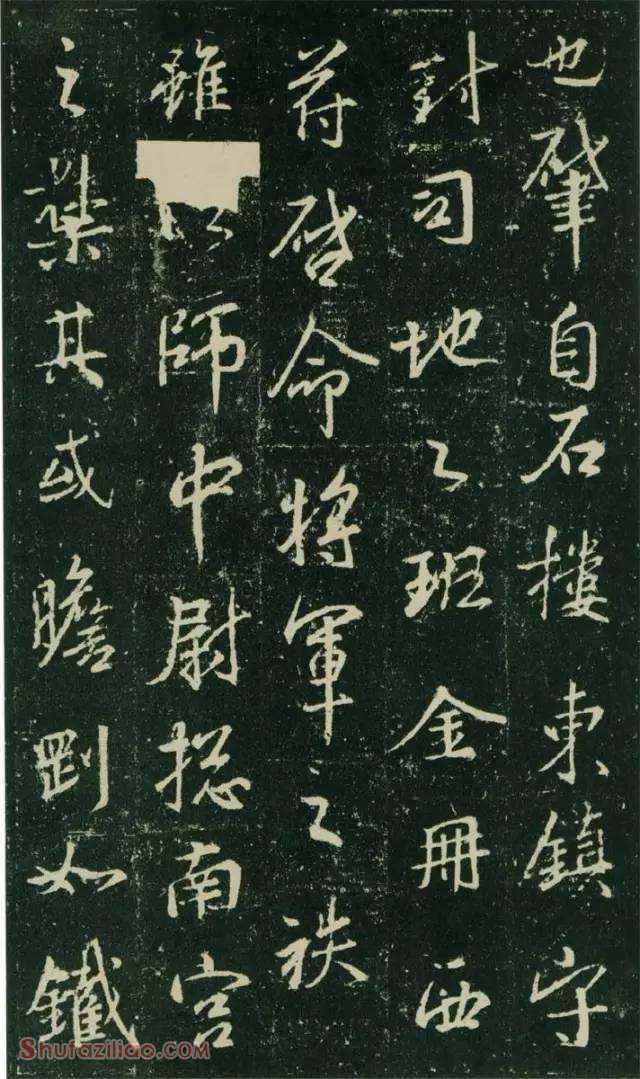 也肇自石樓東鎮守
封司地之班金冊西
苻啓命將軍之袟
雖以師中尉揔南宮
之葉其或瞻剛如鐵
Shufaziliao.com